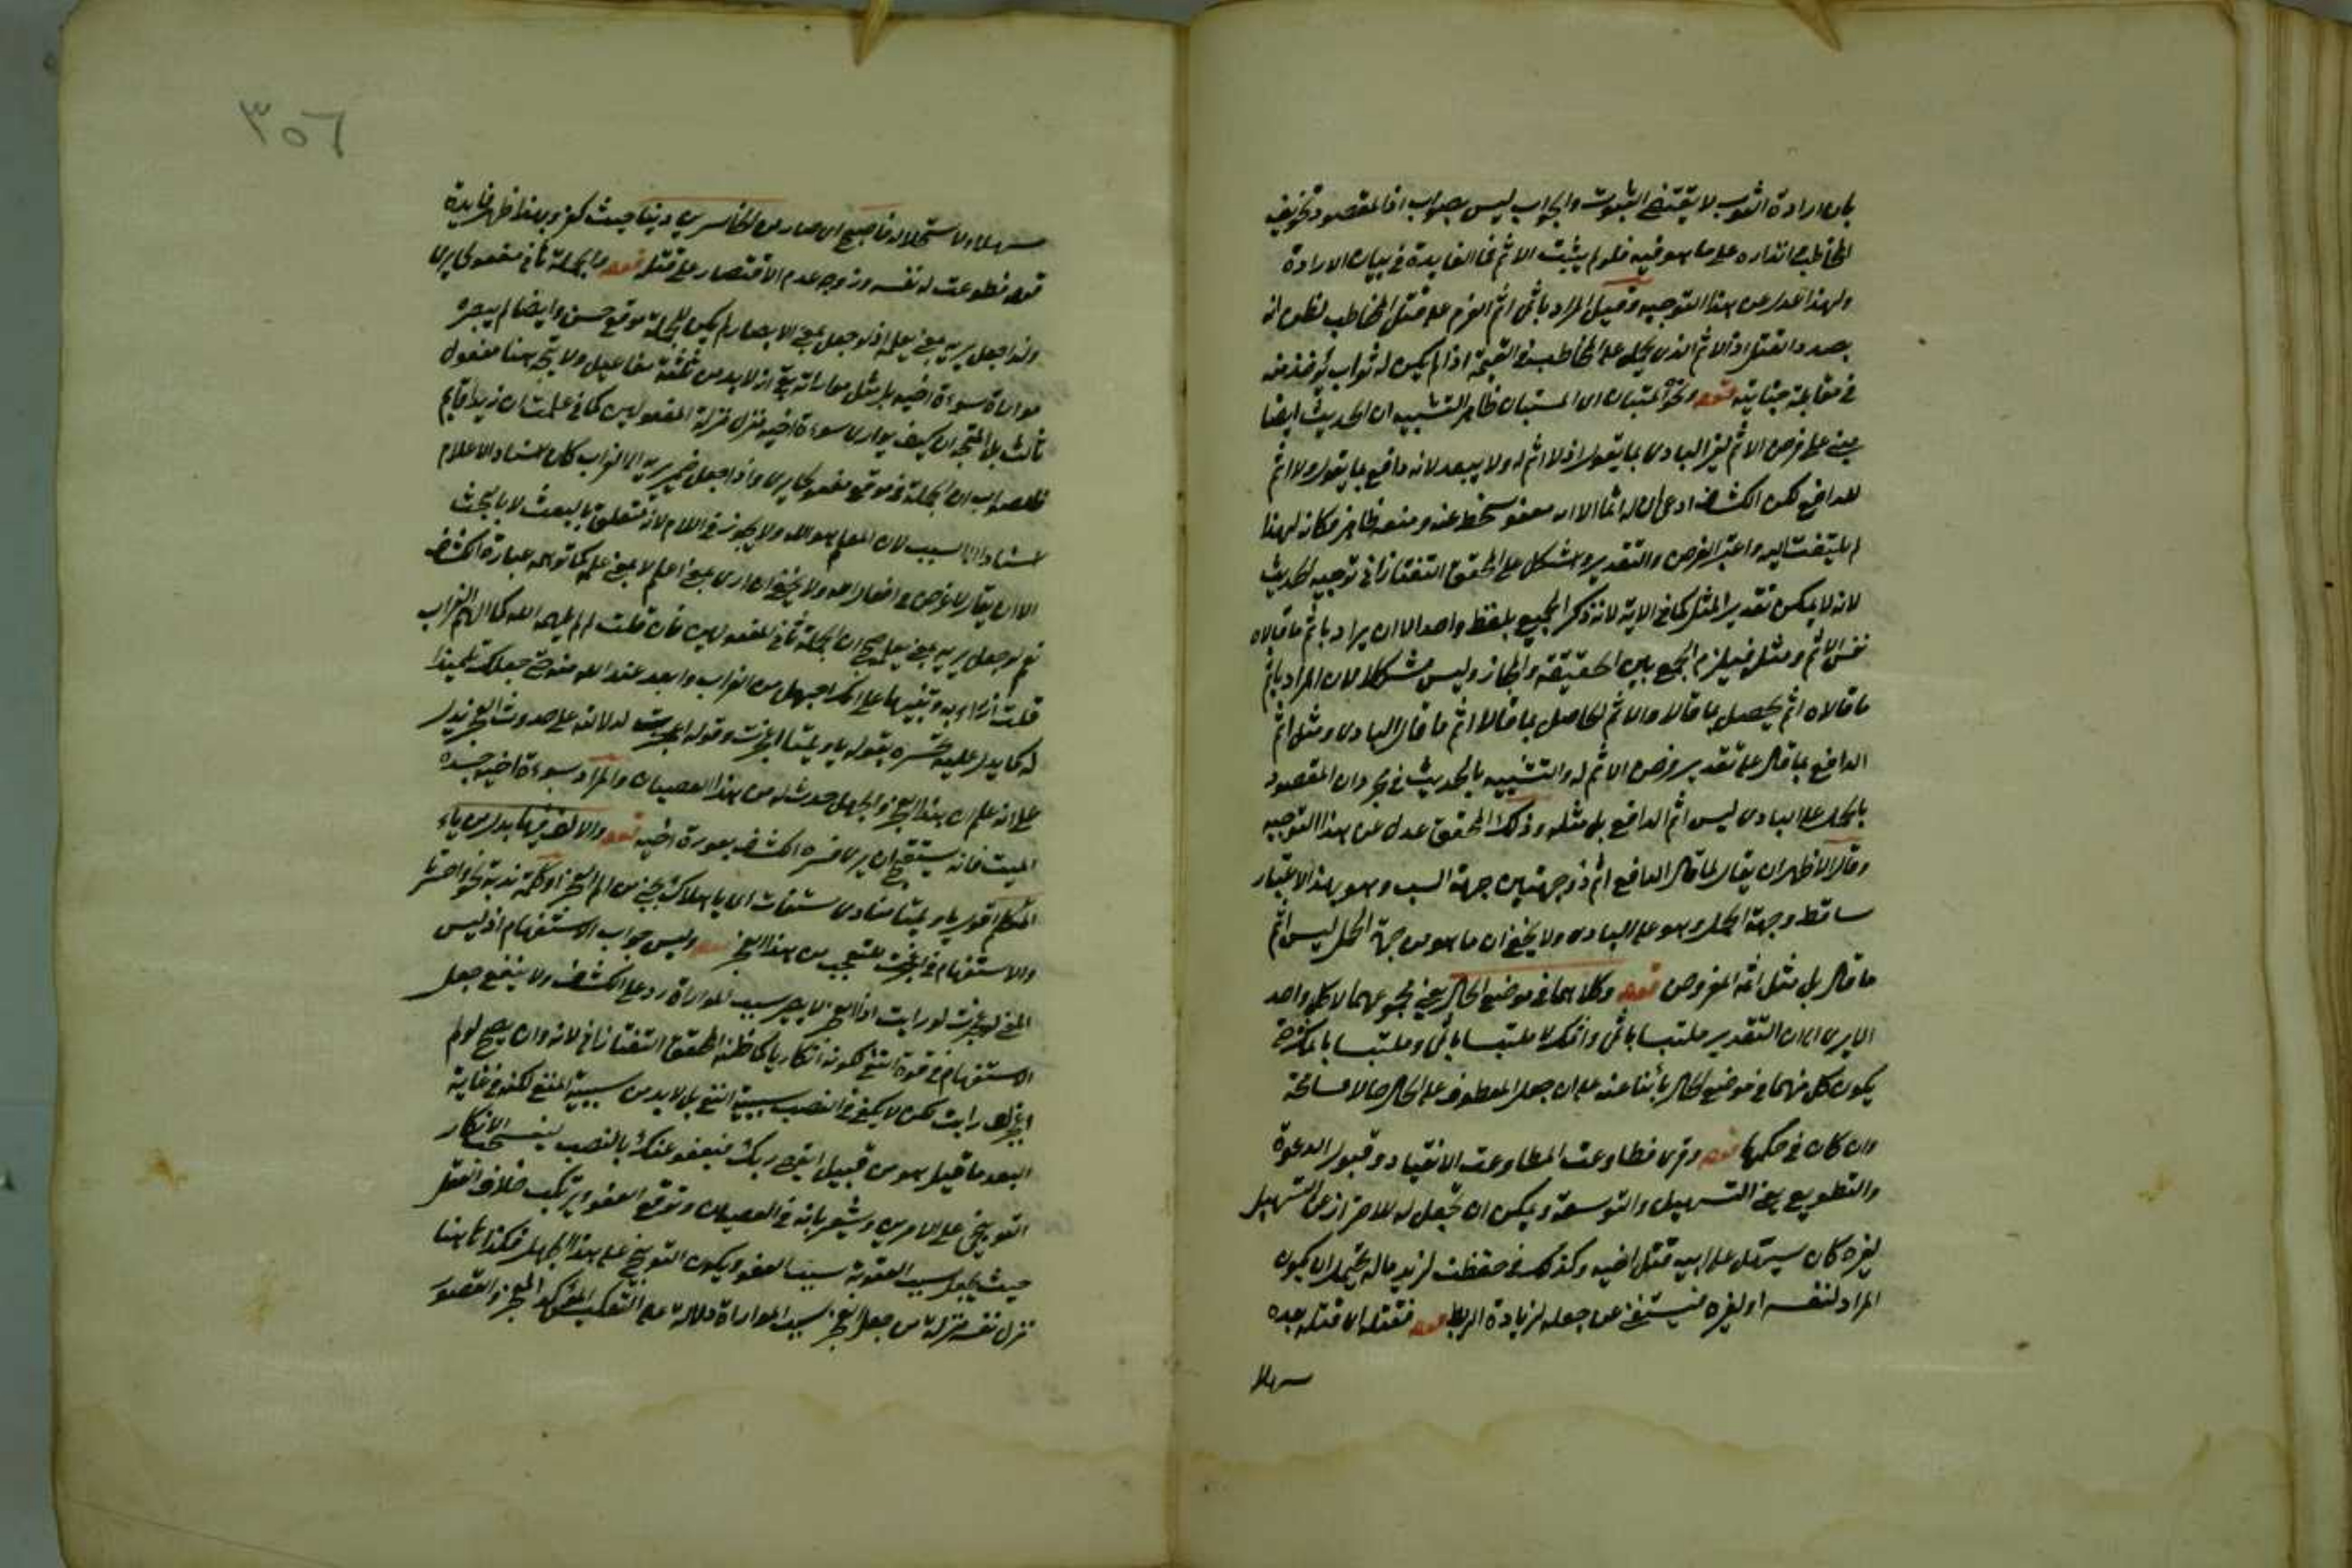 بان ارادة الثوب لا يقتضي الثبوت والجواب ليس بصواب اذ المقصود تخويف
المخاطب وانذاره على ما هو فيه فلو لم يثبت الاثم فما الفايدة في بيان الارادة
ولهذا عدل عن هذا التوجيه وقيل المراد باثمي اثم العزم على قتل المخاطب
بصدد القتل اذ الاثم الذي يحمل على المخاطب في القيمة اذا لم يكن له ثواب يؤخذ منه
في مقابلة جنايته قوله ونحوه المستبان اي المستبان ظاهر التشبيه ان الحديث ايضا
مبني على فرض الاثم لغير البادي بما يقول اذ لا اثم له ولا يبعد لانه دافع بما يقول ولا اثم
للدافع لكن الكشاف ادعى ان له اثما الا انه معفو يحط عنه ومنعه ظاهر فكانه لهذا
لم يلتفت اليه واعتبر الفرض والتقدير واشكل على المحقق التفتازاني توجيه الحديث
لانه لا يمكن تقدير المثل كما في الاية لانه ذكر الجميع بلفظ واحد الا ان يراد باثم ما قالاه
نفس الاثم ومثله فيلزم الجمع بين الحقيقة والمجاز وليس مشكلا لان المراد باثم
ما قالاه اثم يحصل بما قالا والاثم الحاصل بما قالا اثم ما قال البادي ومثل اثم
الدافع بما قال على تقدير فرض الاثم له والتشبيه بالحديث في مجرد ان المقصود
بالحمل على البادي ليس اثم الدافع بل مثله وذلك المحقق عدل عن هذا التوجيه
وقال الاظهر ان يقال لما قال الدافع اثم ذو جهتين جهة السب وهو بهذا الاعتبار
ساقط وجهة الحمل وهو على البادي ولا يخفى ان ما هو من جهة الحمل ليس اثم
ما قال بل مثل اثمه المفروض قوله وكلاهما في موضع الحال يعني مجموعهما لا كل واحد
الا يرى ان التقدير ملتبسا باثمي واثمك لا ملتبسا باثمي وملتبسا باثمك حتى
يكون كل منهما في موضع الحال بأننا عنه على ان جعل المعطوف على الحال حالا مسامحة
وان كان في حكمها قوله وقرئ فطاوعت المطاوعت الانقياد وقبول الدعوة
والتطويع يعني التسهيل والتوسعة ويمكن ان تجعل له للاحتراز عن التسهيل
لغيره كان سيسهل على ابيه قتل اخيه وكذلك في حفظت لزيد ماله يحتمل ان يكون
المراد لنفسه او لغيره فيستغنى عن جعله لزيادة الربط قوله فقتله اي قتله بعده
سهلا
٣٥٦
سهلا ولاستحلاله فاصبح اي صار من الخاسرين دينا حيث كفر وبهذا ظهر فايدة
قوله فطوعت له نفسه ووجه عدم الاقتصار على قتله قوله والجملة ثاني مفعولي يرى
ولذا جعل يريه بمعنى يعلمه اذ لو جعل بمعنى الابصار لم يكن للجملة موقع حسن وايضا لم يبصره
مواراة سوءة اخيه بل مثل مواراته بقي انه لا بد من ثلثة مفاعيل ولا يتجه هنا مفعول
ثالث بل المتجه ان كيف يواري سوءة اخيه نزل منزلة المفعولين كما في علمت ان زيدا قايم
فالصواب ان الجملة في موقع مفعولي يرى واذا جعل ضمير يريه الى الغراب كان اسناد الاعلام
اسنادا الى السبب لان المعلم هو الله ولا يجوز في اللام لانه متعلق بالبعث لا بالبحث
الا ان يقال لا غرض في افعال الله ولا يخفى ان ارى بمعنى اعلم لا بمعنى علم كما توهمه عبارة الكشاف
نعم لو جعل يريه بمعنى يعلمه صح ان الجملة ثاني المفعولين فان قلت لم لم يلهمه الله كما الهم الغراب
قلت ازراء به وتنبيها على انه اجهل من الغراب وابعد عند الله منه حتى جعله تلميذا
له كما يدل عليه تحسره بقوله يا ويلتا اعجزت وقوله اعجزت لدلالته على حدوث العجز يدل
على انه علم ان هذا العجز والجهل حدث له من هذا العصيان والمراد بسوءة اخيه جسده
الميت فانه يستقبح ان يرى فسره الكشاف بعورة اخيه قوله والالف فيها بدل من ياء
المتكلم اقول يا ويلتا منادى مستغاث اي يا هلاك نجني من الم العجز او كلمة ندبة نحو واحسرتا
والاستفهام في اعجزت للتعجب من هذا العجز قوله وليس جواب الاستفهام اذ ليس
المعنى لو عجزت لواريت اذ العجز لا يصير سبب للمواراة رد على الكشاف ولا ينفع جعل
الاستفهام في قوة النفي لكونه انكاريا كما ظنه المحقق التفتازاني لانه وان يصح لو لم
اعجز لواريت لكن لا يكفي في النصب سببية النفي بل لا بد من سببية المنفي لكنه في غاية
البعد ما قيل هو من قبيل اتعصي ربك فيعفو عنك بالنصب لينسحب الانكار
التوبيخي على الامرين ويشعر بانه في العصيان وتوقع العفو ويرتكب خلاف العقل
حيث يجعل سبب العقوبة سبب العفو ويكون التوبيخ على هذا الجهل فكذا ها هنا
نزل نفسه منزلة من جعل العجز سبب المواراة دلالة على التعكيس المؤكد للعجز والقصور